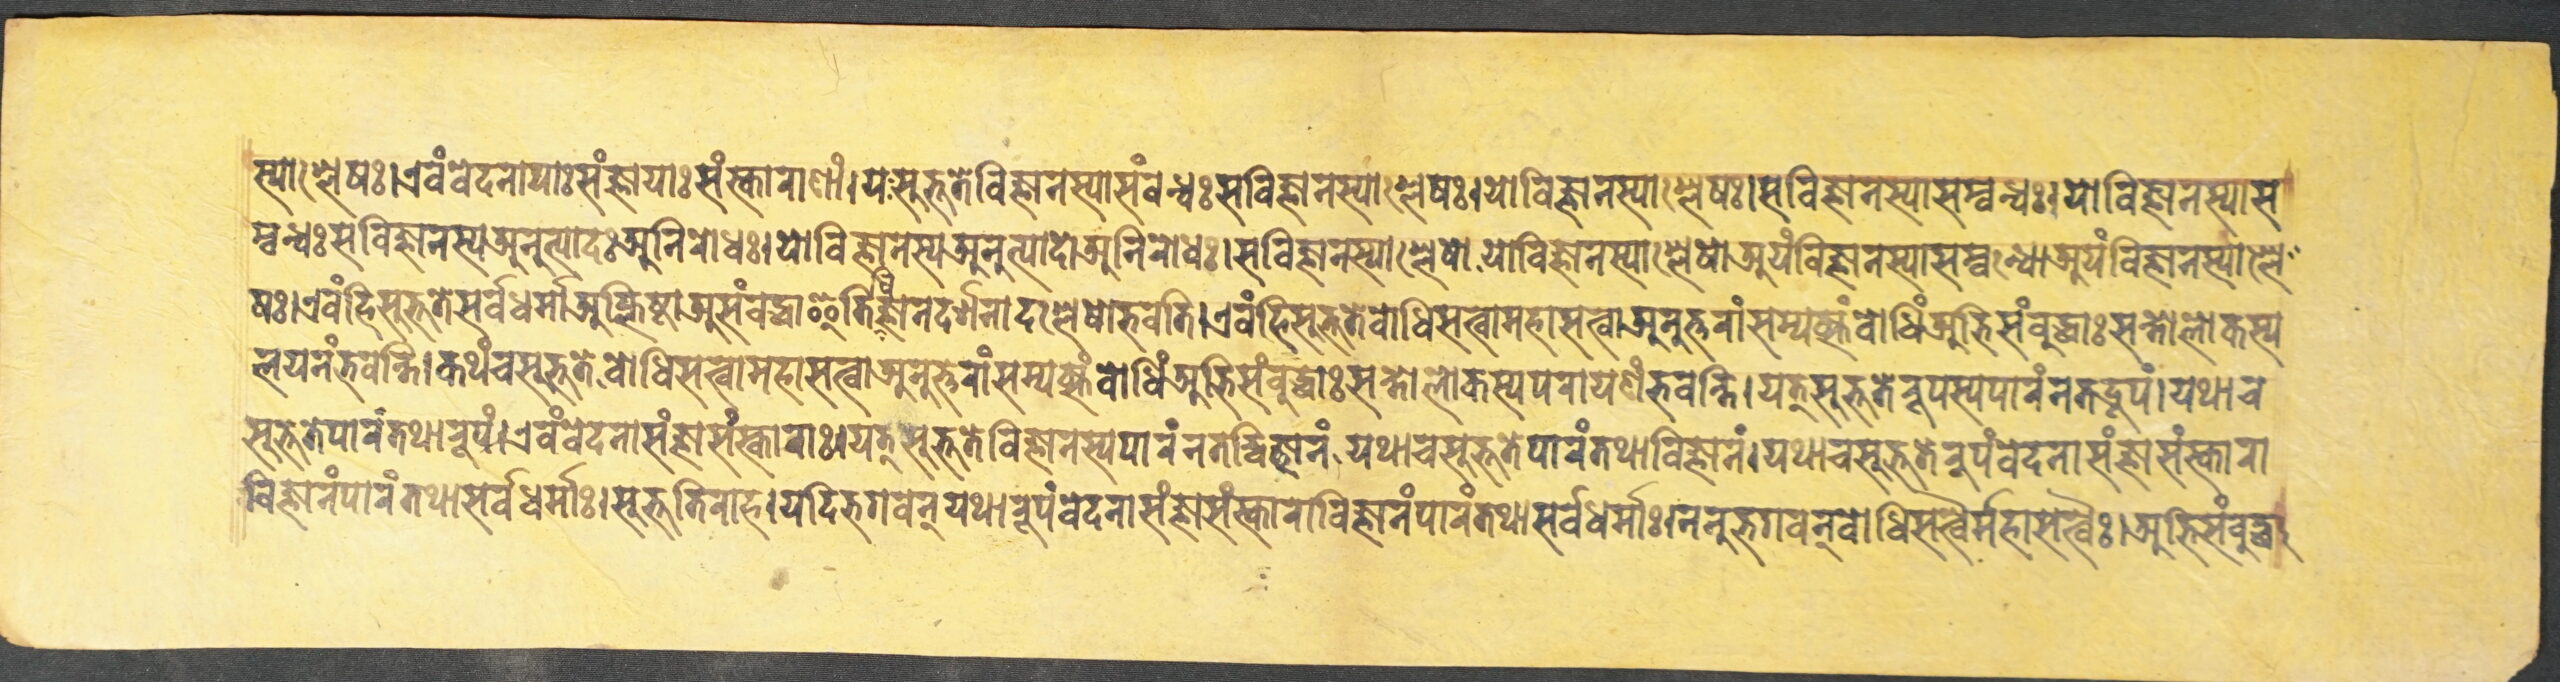 स्याश्लेषः। एवं वेदनायाः संज्ञायाः संस्काराणां। यः सुभूते विज्ञानस्यासंबन्धः स विज्ञानस्याश्लेषः। यो विज्ञानस्याश्लेषः। स विज्ञानस्यासम्बन्धः। यो विज्ञानस्यास
म्बन्धः स विज्ञानस्य अनुत्पादः अनिरोधः। यो विज्ञानस्य अनुत्पादो अनिरोधः। स विज्ञानस्याश्लेषो यो विज्ञानस्याश्लेषो अयं विज्ञानस्यासम्बन्धो अयं विज्ञानस्याश्ले
षः। एवं हि सुभूते सर्वधर्मा अश्लिष्टा असंबद्धा इति ज्ञानदर्शनादश्लेषो भवति। एवं हि सुभूते बोधिसत्वा महासत्वा अनुत्तरां सम्यक्संबोधिं अभिसंबुद्धाः सन्तो लोकस्य
लयनं भवन्ति। कथं च सुभूते बोधिसत्वा महासत्वा अनुत्तरां सम्यक्संबोधिं अभिसंबुद्धाः सन्तो लोकस्य परायणं भवन्ति। यत् सुभूते रूपस्य पारं न तद्रूपं। यथा च
सुभूते पारं तथा रूपं। एवं वेदना संज्ञा संस्काराः। यत् सुभूते विज्ञानस्य पारं न तद्विज्ञानं यथा च सुभूते पारं तथा विज्ञानं। यथा च सुभूते रूपं वेदना संज्ञा संस्कारा
विज्ञानं पारं तथा सर्वधर्माः। सुभूतिराह। यदि भगवन् यथा रूपं वेदना संज्ञा संस्कारा विज्ञानं पारं तथा सर्वधर्माः। ननु भगवन् बोधिसत्वैर्महासत्वैः। अभिसंबुद्धा